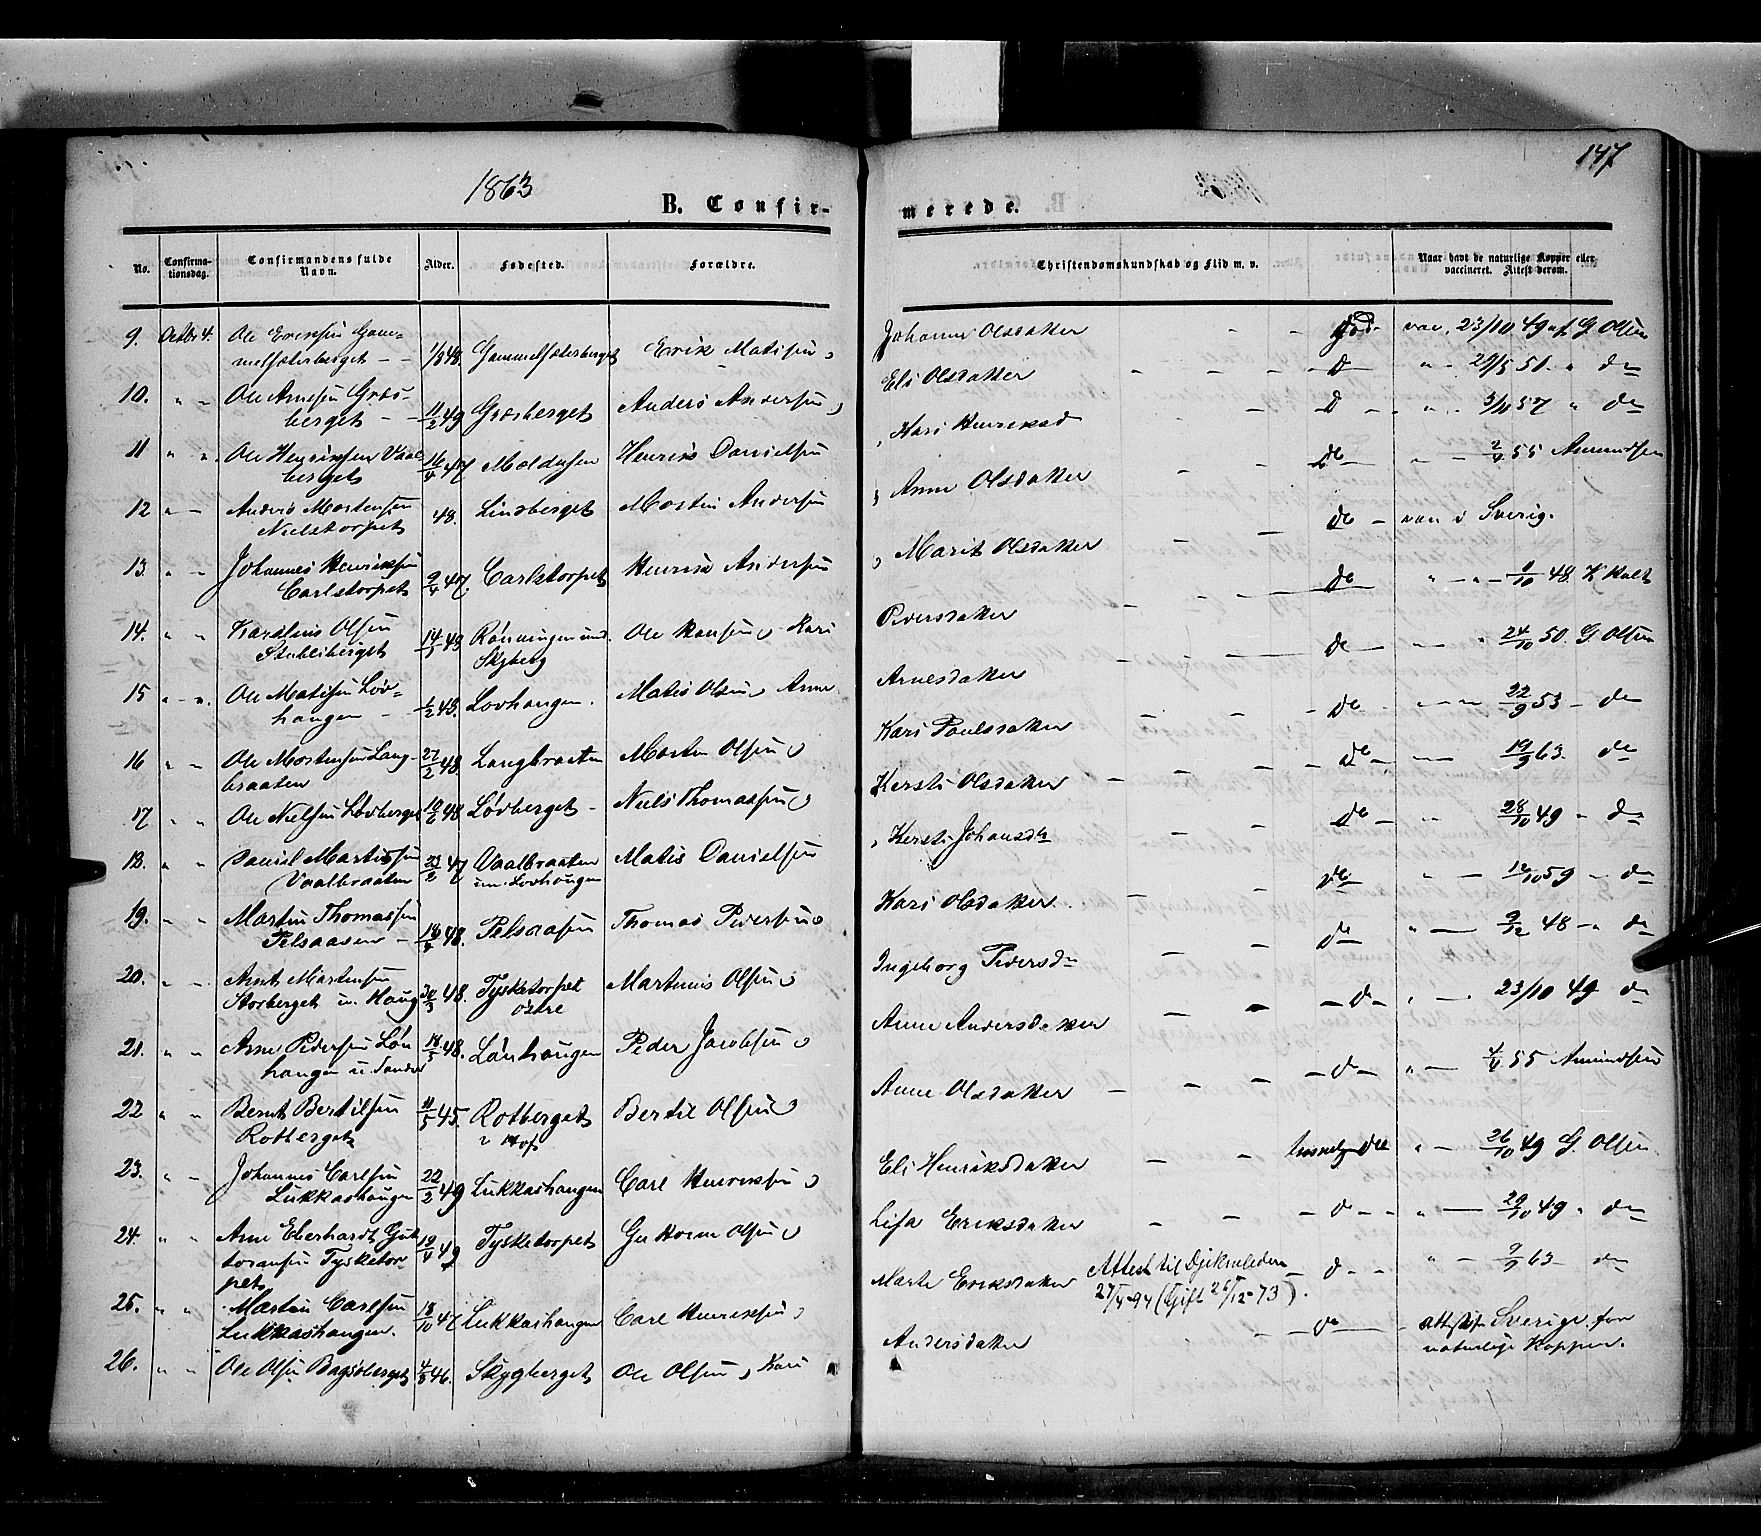 1863
147
B. Confir-
merede.
No.
Confirma-
tionsdag.
Confirmandens fulde
Navn.
Alder.
Fødested.
Forældre.
Christendomskundskab og Flid m. v.
Naar havt de naturlige Kopper eller
vaccineret. Attest derom.
9. Octbr 4. Ole Eriksen Gam-
melsæterberget - - 1/8 48. Gammelsæterberget Erik Matisen, Johanne Olsdatter god vac. 23/10 49 af G. Olsen
10. " " Ole Arnesen Græs-
berget - 11/2 49 Græsberget Anders Andersen, Eli Olsdatter - D - " 29/5 50 " do
11 " " Ole Henriksen Vaal-
berget 16/4 47 Moldusen Henrik Danielsen, Kari Henriksd D " 57 " do
12 " " Anders Mortensen
Nielstorpet 48. Linberget Morten Andersen, Anne Olsdatter do " 55 Amundsen
13 " " Johannes Henriksen
Carlstorpet 9/4 47. Carlstorpet Henrik Andersen, Marit Olsdatter do - vac i Sverig.
14. " " Karelius Olsen
Stubliberget 14/5 49 Rønningen und.
Skyberg Ole Hansen, Kari Pedersdatter do " 1/10 48. K Kalt
15 " " Ole Matisen Løv-
haugen - 1/2 48. Lovhaugen. Matis Olsen, Anne Arnesdatter do " 24/10 50. G Olsen
16 " " Ole Mortensen Lang-
braaten 27/2 48. Langbraaten Morten Olsen, Kari Poulsdatter do " 22/9 53 - do
17 " " Ole Nielsen Løvberget 10/6 48 Løvberget - Niels Thomassen, Kersti Olsdatter do " 19/9 63. do
18. " " Daniel Martissen
Vaalbraaten 23/2 47 Vaalbraaten
un. Lovhaugen Matis Danielsen, Kersti Johansdtr do " 28/10 49 " do
19. " " Martin Thomassen
Pelsaasen - 18/5 48. Pelsaasen Thomas Pedersen, Kari Olsdatter do " 12/10 59 - do
20. " " Arnt Martinsen
Storberget u. Haug 30/3 48. Tysketorpet
østre Martinus Olsen, Ingeborg Pedersdr do " 9/12 48 - " do
21. " " Arne Pedersen Løn-
haugen u. Sander 18/5 48. Lønhaugen Peder Jacobsen, Anne Andersdatter - d - " 23/10 49 do
22 " " Bernt Bertilsen
Rotberget 11/5 45. Rotberget
i Hof Bertil Olsen, Anne Olsdatter - d - " 55 Amundsen
23. " " Johannes Carlsen
Lukkashaugen 22/2 49 Lukkashaugen Carl Henriksen, Eli Henriksdatter do " 26/10 49 G. Olsen.
24. " " Arne Eberhardt Gut-
toransen Tysketor-
pet 19/4 49 Tysketorpet Guttorm Olsen, Lisa Eriksdatter - d - - " 29/10 49 " do
25. " " Martin Carlsen
Lukkashaugen. 18/10 47 Lukkashaugen Carl Henriksen, Marte Eriksdatter Attest til
27/4-94 (Gift 26/12-73). d - - " 9/9 63 - do
26. " " Ole Olsen Bagsberget 4/8 46. Skygberget Ole Olsen, Kari Andersdatter - do - Sverige for
naturlige Kopper.